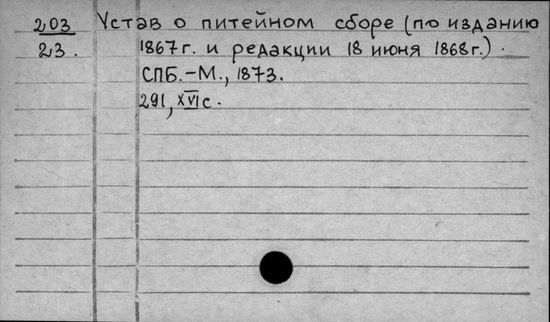 203 Устав о питейном сборе (по изданию
23. 1867 г. и редакции 18 июня 1868 г.).
СПБ.-М., 1873.
291, XVI с.